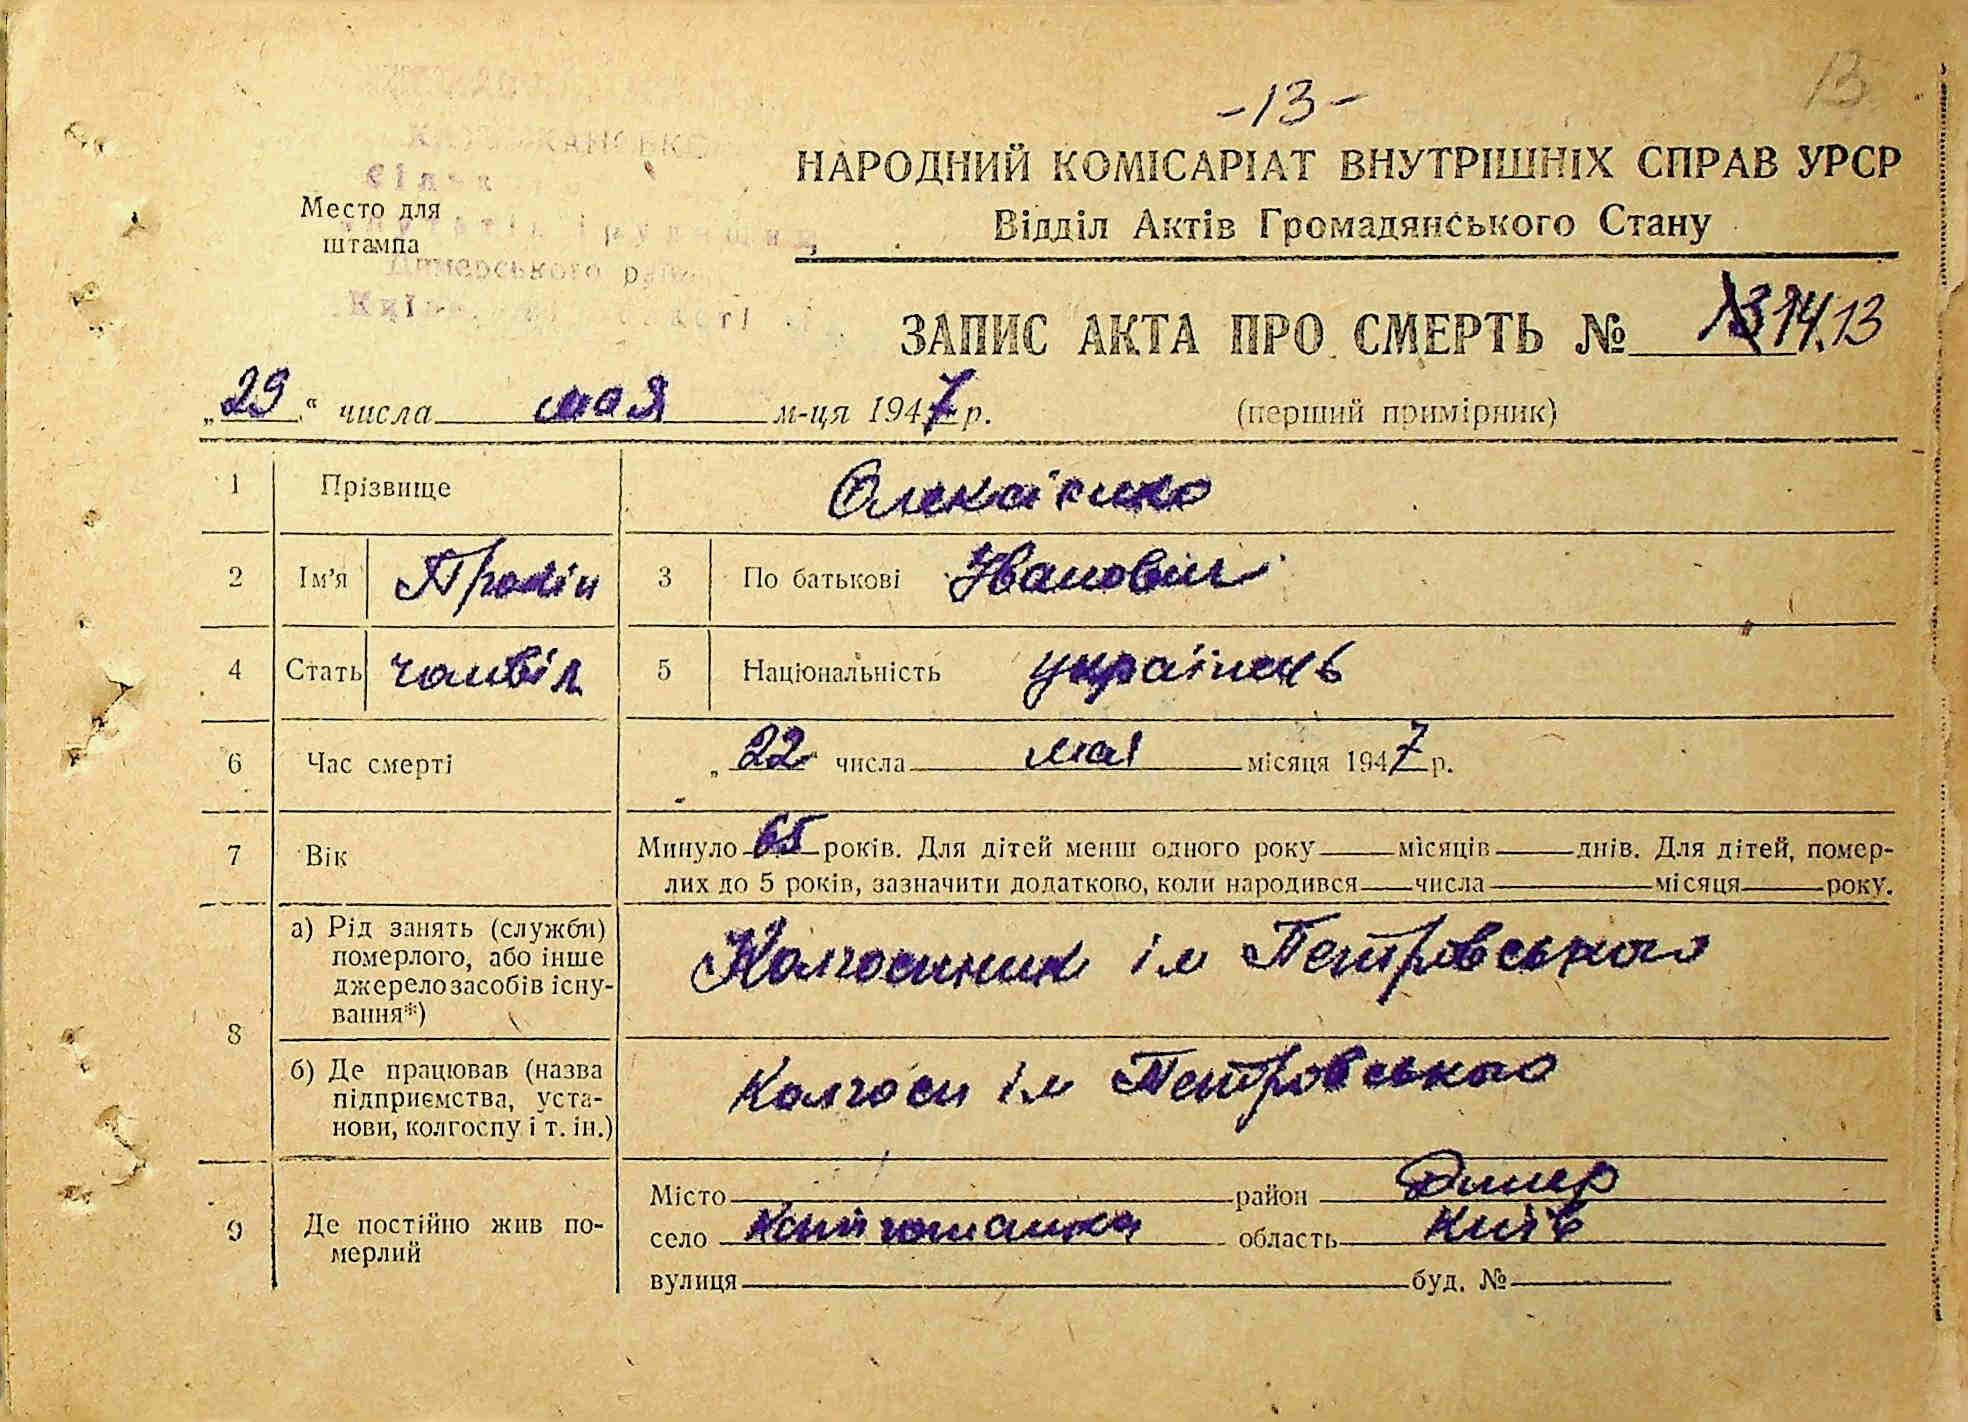 -13-
13
НАРОДНИЙ КОМІСАРІАТ ВНУТРІШНІХ СПРАВ УРСР
Відділ Актів Громадянського Стану
Место для
штампа
Димерського
ЗАПИС АКТА ПРО СМЕРТЬ № 13 14. 13
„29“ числа мая м-ця 1947 р. (перший примірник)
1 Прізвище Олексієнко
2 Ім'я 3 По батькові Іванович
4 Стать чоловіч 5 Національність українець
6 Час смерті „22“ числа мая місяця 1947 р.
7 Вік Минуло 65 років. Для дітей менш одного року місяців днів. Для дітей, помер-
лих до 5 років, зазначити додатково, коли народився числа місяця року.
8 а) Рід занять (служби)
померлого, або інше
джерело засобів існу-
вання*)
Колгоспник ім Петровського
б) Де працював (назва
підприємства, уста-
нови, колгоспу і т. ін.)
Колгосп ім Петровського
9 Де постійно жив по-
мерлий
Місто район Димер
село область Київ
вулиця буд. №